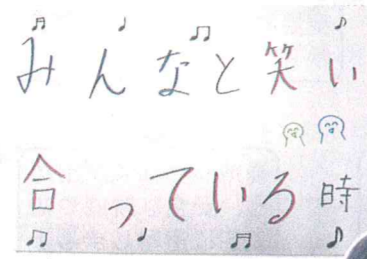 みんなと笑い
合っている時